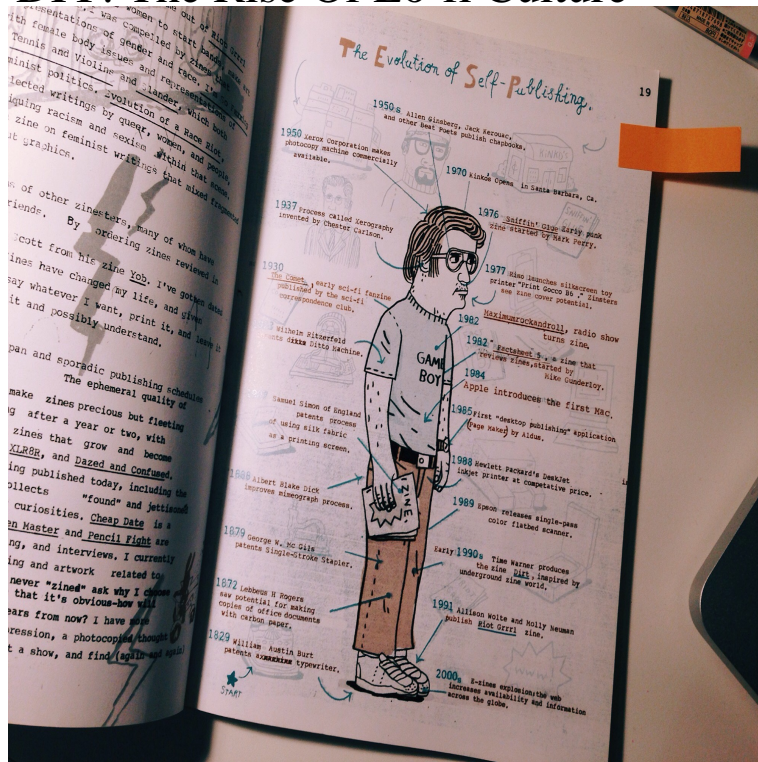 out of Riot Grrrl
women to start bands,
was compelled by zines that
presentations of gender and race.
with female body issues and representations of
Tennis and Violins and Slander, which both
feminist politics, Evolution of a Race Riot,
writings by queer, women, and people,
racism and sexism within that scene.
zine on feminist writings that mixed fragmented
graphics.
of other zinesters, many of whom have
friends. By ordering zines reviewed in
Scott from his zine Yob. I've gotten
zines have changed my life, and given
say whatever I want, print it, and leave it
it and possibly understand.
pan and sporadic publishing schedules
The ephemeral quality of
make zines precious but fleeting
after a year or two, with
zines that grow and become
XLR8R, and Dazed and Confused.
ing published today, including the
ollects "found" and jettisoned
curiosities. Cheap Date is a
en Master and Pencil Fight are
ng, and interviews. I currently
ing and artwork related to
never "zined" ask why I choose
that it's obvious—how will
ears from now? I have more
pression, a photocopied thought
t a show, and find (again and again)
The Evolution of Self-Publishing.
19
1950s Allen Ginsberg, Jack Kerouac,
and other Beat Poets publish chapbooks.
1950 Xerox Corporation makes
photocopy machine commercially
available.
KINKO'S
1970 Kinkos Opens in Santa Barbara, Ca.
1937 Process called Xerography
invented by Chester Carlson.
1976 "Sniffin' Glue Early punk
zine started by Mark Perry.
1930
The Comet, early sci-fi fanzine
published by the sci-fi
correspondence club.
1977 Riso launches silkscreen toy
printer "Print Gocco B6." Zinsters
see zine cover potential.
1982 Maximumrockandroll, radio show
turns zine.
Wilhelm Ritzerfeld
Ditto Machine.
1982 "Factsheet 5, a zine that
reviews zines, started by
Mike Gunderloy.
GAME
BOY
1984
Apple introduces the first Mac.
Samuel Simon of England
patents process
of using silk fabric
as a printing screen.
1985 First "desktop publishing" application
(Page Maker) by Aldus.
1988 Hewlett Packard's DeskJet
inkjet printer at competative price.
Albert Blake Dick
improves mimeograph process.
ZINE
1989 Epson releases single-pass
color flatbed scanner.
1879 George W. Mc Gils
patents Single-Stroke Stapler.
Early 1990s Time Warner produces
the zine Dirt, inspired by
underground zine world.
1872 Lebbeus H Rogers
saw potential for making
copies of office documents
with carbon paper.
1991 Allison Wolfe and Molly Neuman
publish Riot Grrrl zine.
1829 William Austin Burt
patents typewriter.
START
2000s E-zines explosion; the web
increases availability and information
across the globe.